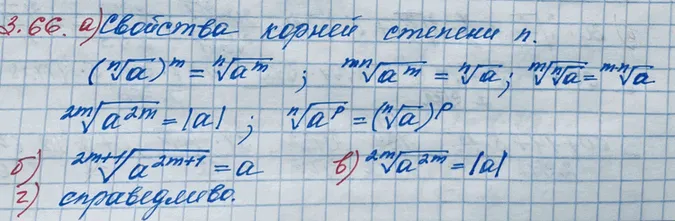 3.66. а) Свойства корней степени n.
(ⁿ√a)ᵐ = ⁿ√aᵐ ; ᵐⁿ√aᵐ = ⁿ√a ; ᵐ√ⁿ√a = ᵐ·ⁿ√a
²ᵐ√a²ᵐ = |a| ; ⁿ√aᵖ = (ⁿ√a)ᵖ
б) ²ᵐ⁺¹√a²ᵐ⁺¹ = a в) ²ᵐ√a²ᵐ = |a|
г) справедливо.